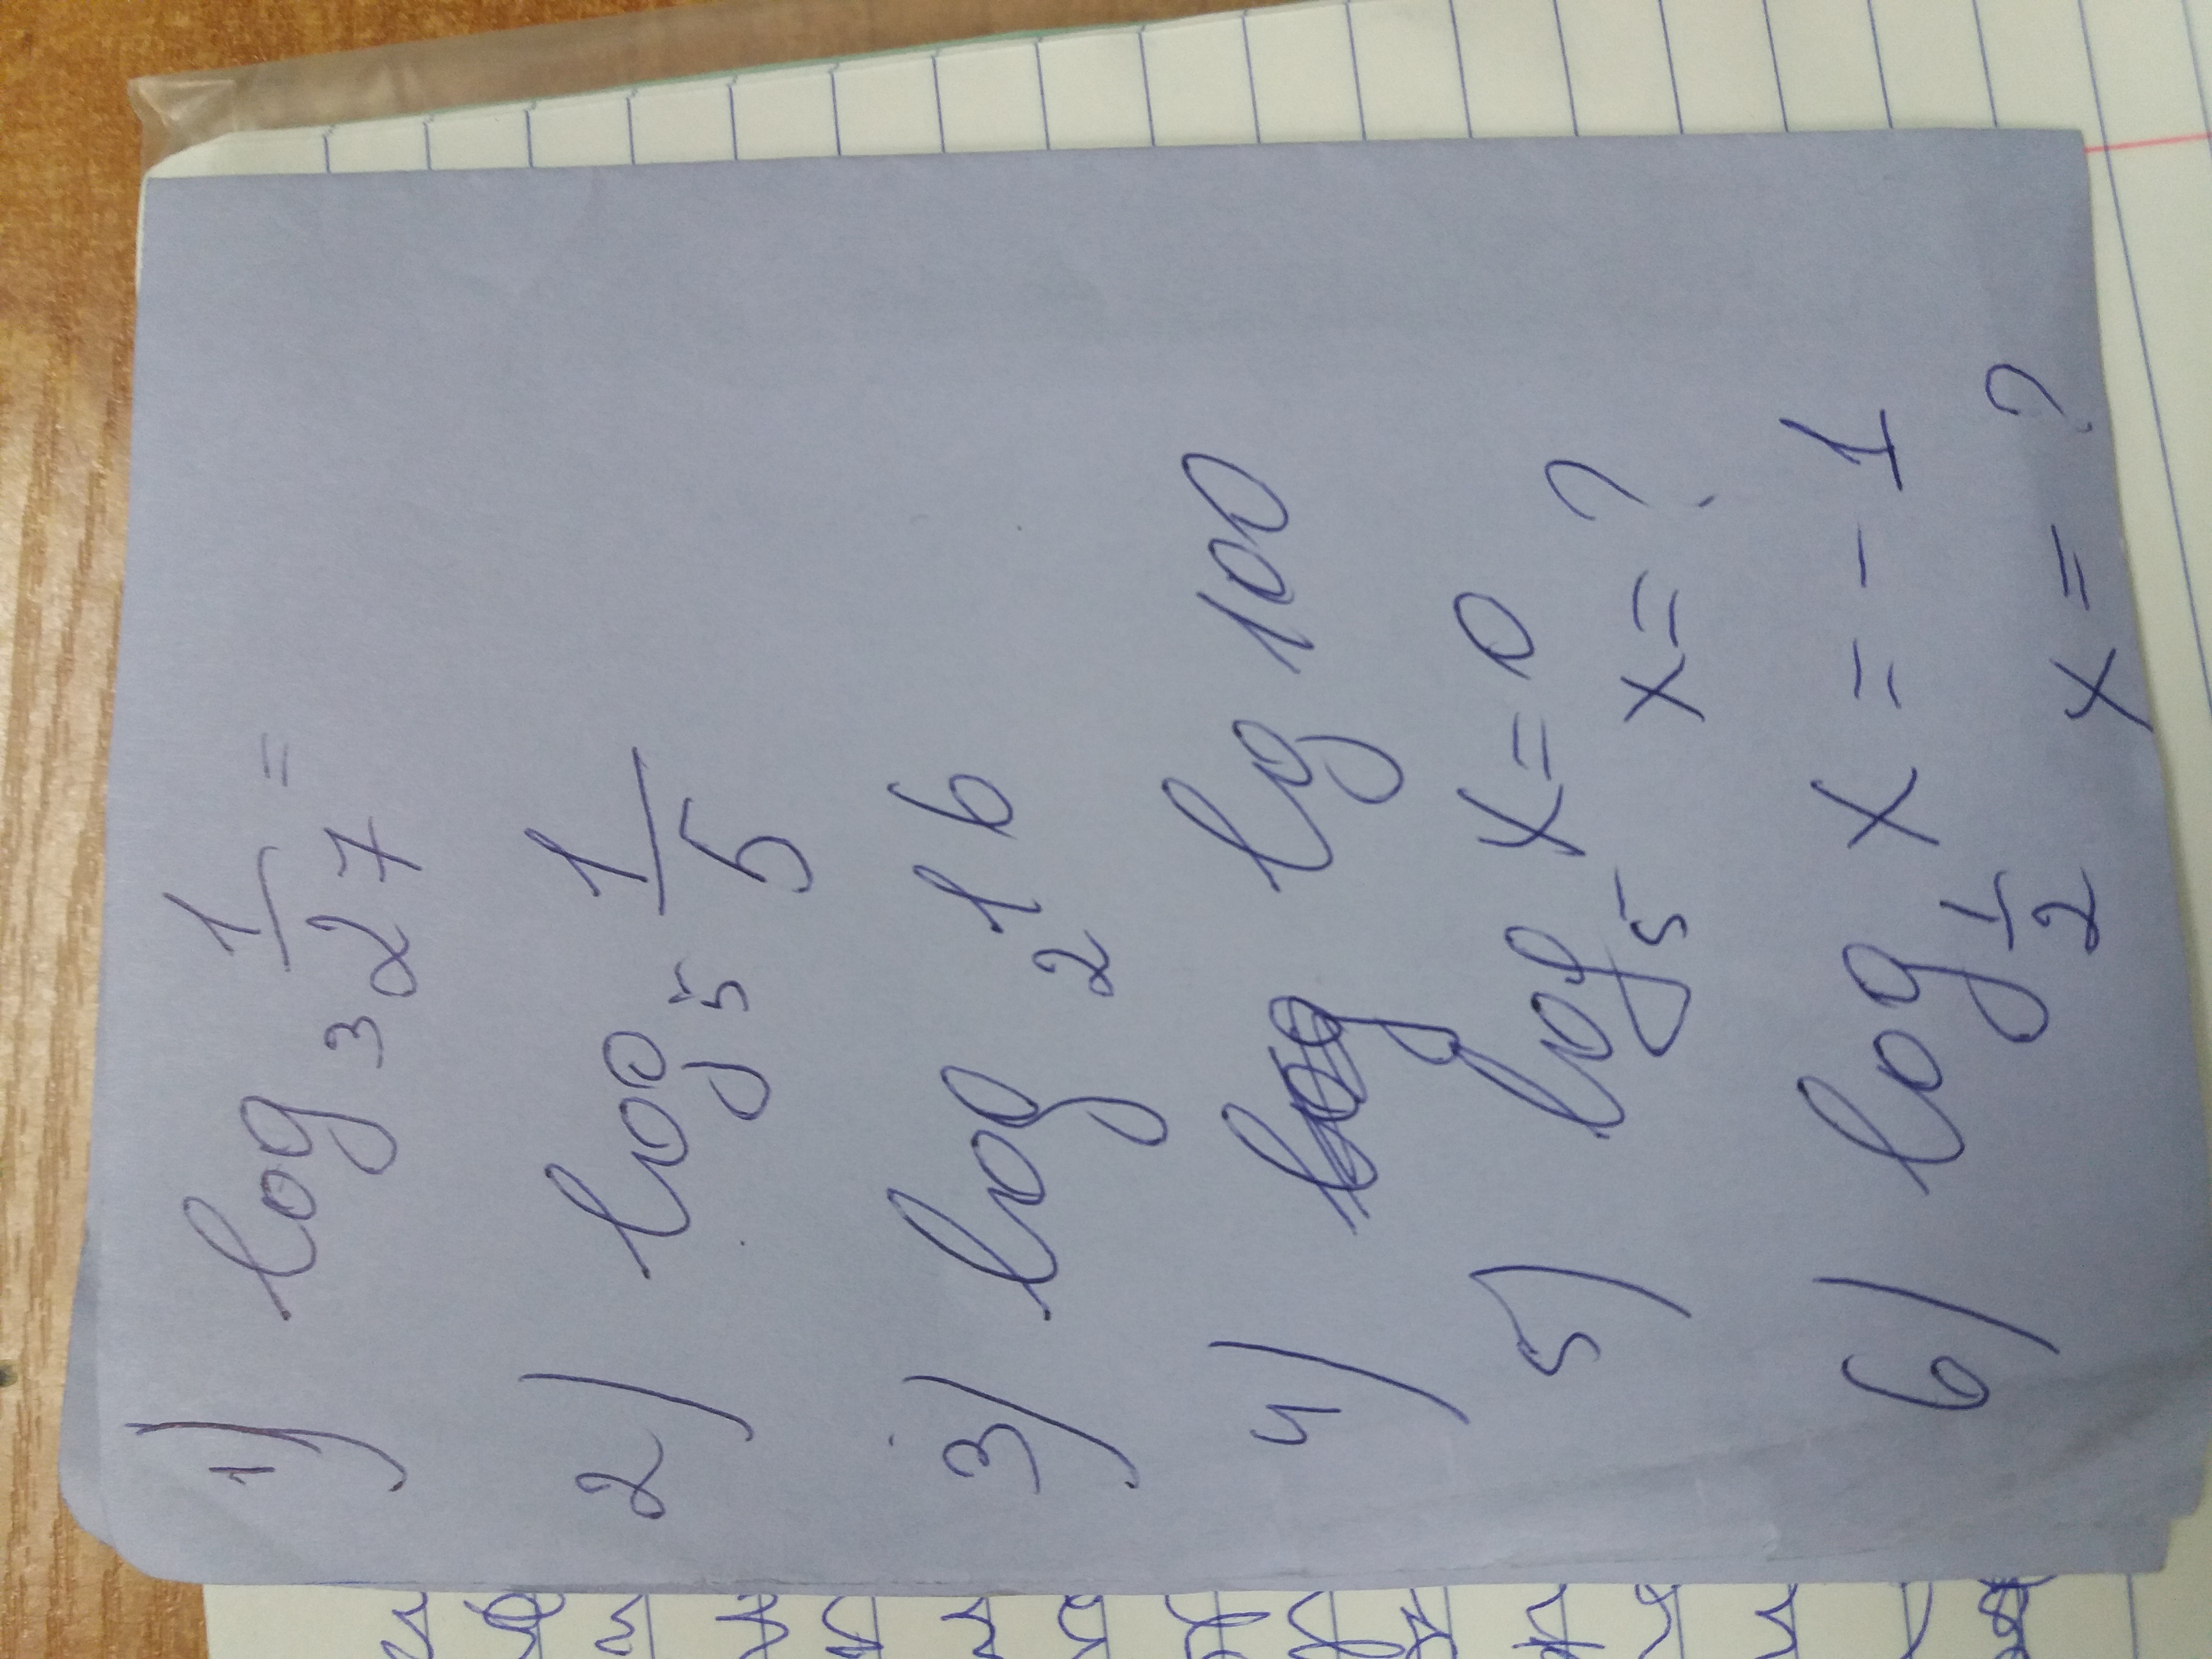 1) log₃ 1/27 =
2) log₅ 1/5
3) log₂ 16
4) lg 100
5) log₅ x = 0
x = ?
6) log_{1/2} x = -1
x = ?